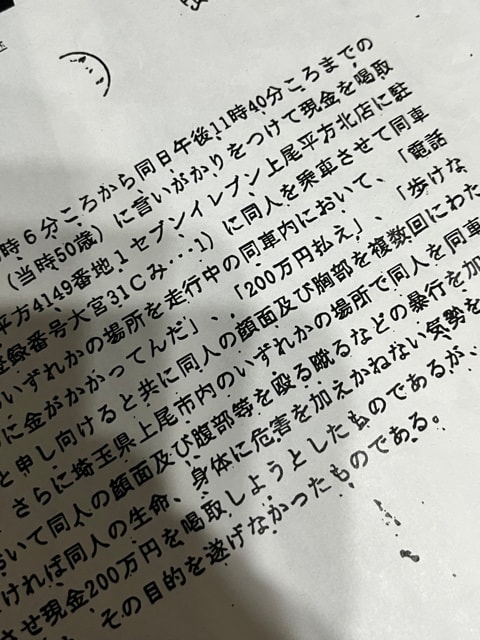 時6分ころから同日午後11時40分ころまでの
（当時50歳）に言いがかりをつけて現金を喝取
平方4149番地1セブンイレブン上尾平方北店に駐
登録番号大宮31Cみ・・・1）に同人を乗車させて同車
いずれかの場所を走行中の同車内において、「電話
に金がかかってんだ」、「200万円払え」、「歩けな
と申し向けると共に同人の顔面及び胸部を複数回にわた
、さらに埼玉県上尾市内のいずれかの場所で同人を同車
おいて同人の顔面及び腹部等を殴る蹴るなどの暴行を加
ければ同人の生命、身体に危害を加えかねない気勢を
させ現金200万円を喝取しようとしたものであるが、
、その目的を遂げなかったものである。